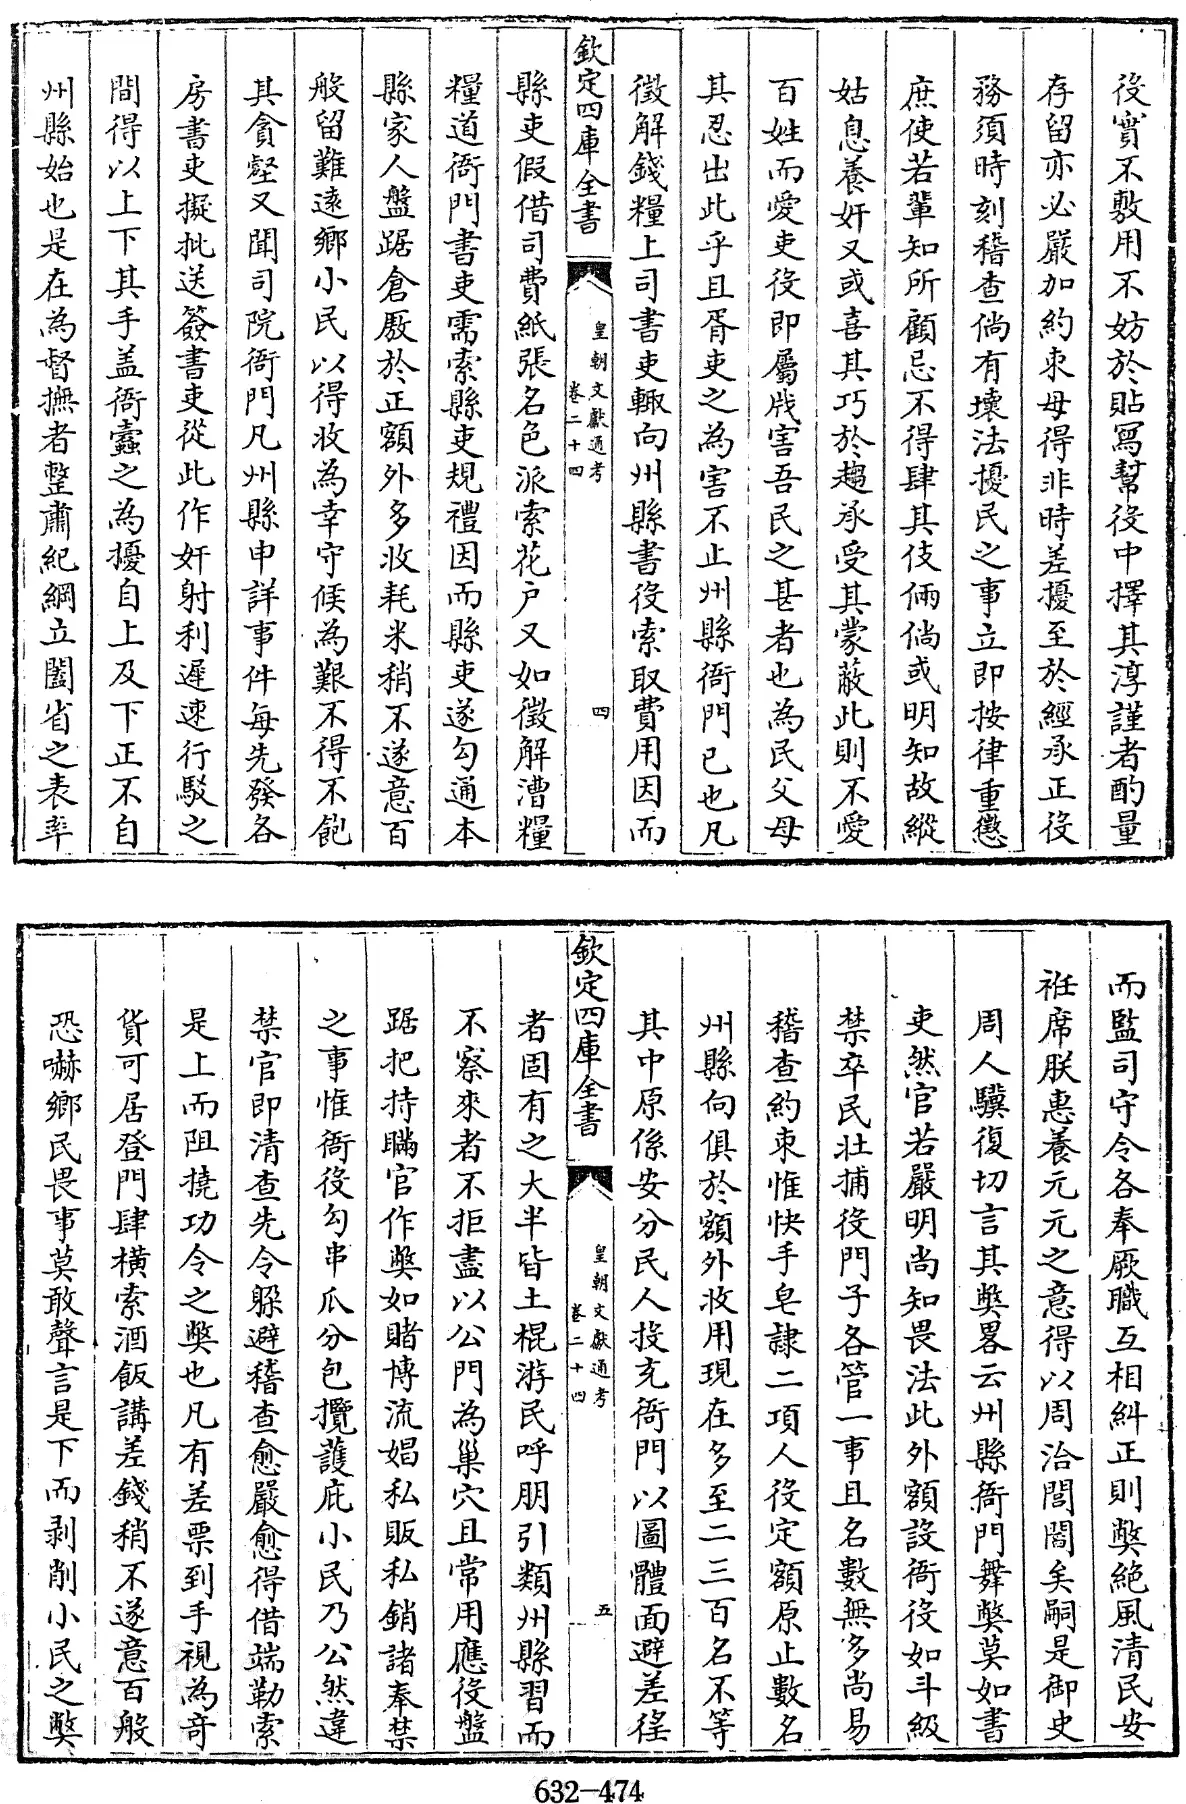 役實不敷用不妨於貼寫幫役中擇其淳謹者酌量
存留亦必嚴加約束毋得非時差擾至於經承正役
務須時刻稽查倘有壞法擾民之事立即按律重懲
庶使若輩知所顧忌不得肆其伎倆倘或明知故縱
姑息養奸又或喜其巧於趨承受其蒙蔽此則不愛
百姓而愛吏役即屬戕害吾民之甚者也為民父母
其忍出此乎且胥吏之為害不止州縣衙門已也凡
徵解錢糧上司書吏輙向州縣書役索取費用因而
欽定四庫全書
皇朝文獻通考
卷二十四
四
縣吏假借司費紙張名色派索花户又如徵解漕糧
糧道衙門書吏需索縣吏規禮因而縣吏遂勾通本
縣家人盤踞倉厫於正額外多收耗米稍不遂意百
般留難遠鄉小民以得收為幸守候為艱不得不飽
其貪壑又聞司院衙門凡州縣申詳事件每先發各
房書吏擬批送簽書吏從此作奸射利遲速行駁之
間得以上下其手盖衙蠹之為擾自上及下正不自
州縣始也是在為督撫者整肅紀綱立闔省之表率
而監司守令各奉厥職互相糾正則弊絶風清民安
袵席朕惠養元元之意得以周洽閭閻矣嗣是御史
周人驥復切言其弊畧云州縣衙門舞弊莫如書
吏然官若嚴明尚知畏法此外額設衙役如斗級
禁卒民壯捕役門子各管一事且名數無多尚易
稽查約束惟快手皂隷二項人役定額原止數名
州縣向俱於額外收用現在多至二三百名不等
其中原係安分民人投充衙門以圖體面避差徭
欽定四庫全書
皇朝文獻通考
卷二十四
五
者固有之大半皆土棍游民呼朋引類州縣習而
不察來者不拒盡以公門為巢穴且常用應役盤
踞把持瞞官作弊如賭博流娼私販私銷諸奉禁
之事惟衙役勾串瓜分包攬護庇小民乃公然違
禁官即清查先令躱避稽查愈嚴愈得借端勒索
是上而阻撓功令之弊也凡有差票到手視為奇
貨可居登門肆橫索酒飯講差錢稍不遂意百般
恐嚇鄉民畏事莫敢聲言是下而剥削小民之弊
632-474